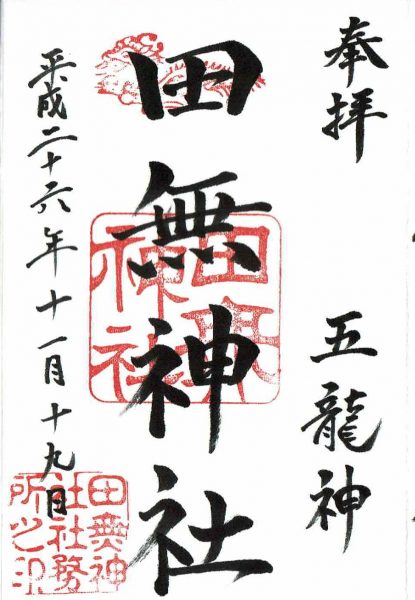 奉拝
五龍神
田無神社
田無神社
平成二十六年十一月十九日
田無神社社務所之印